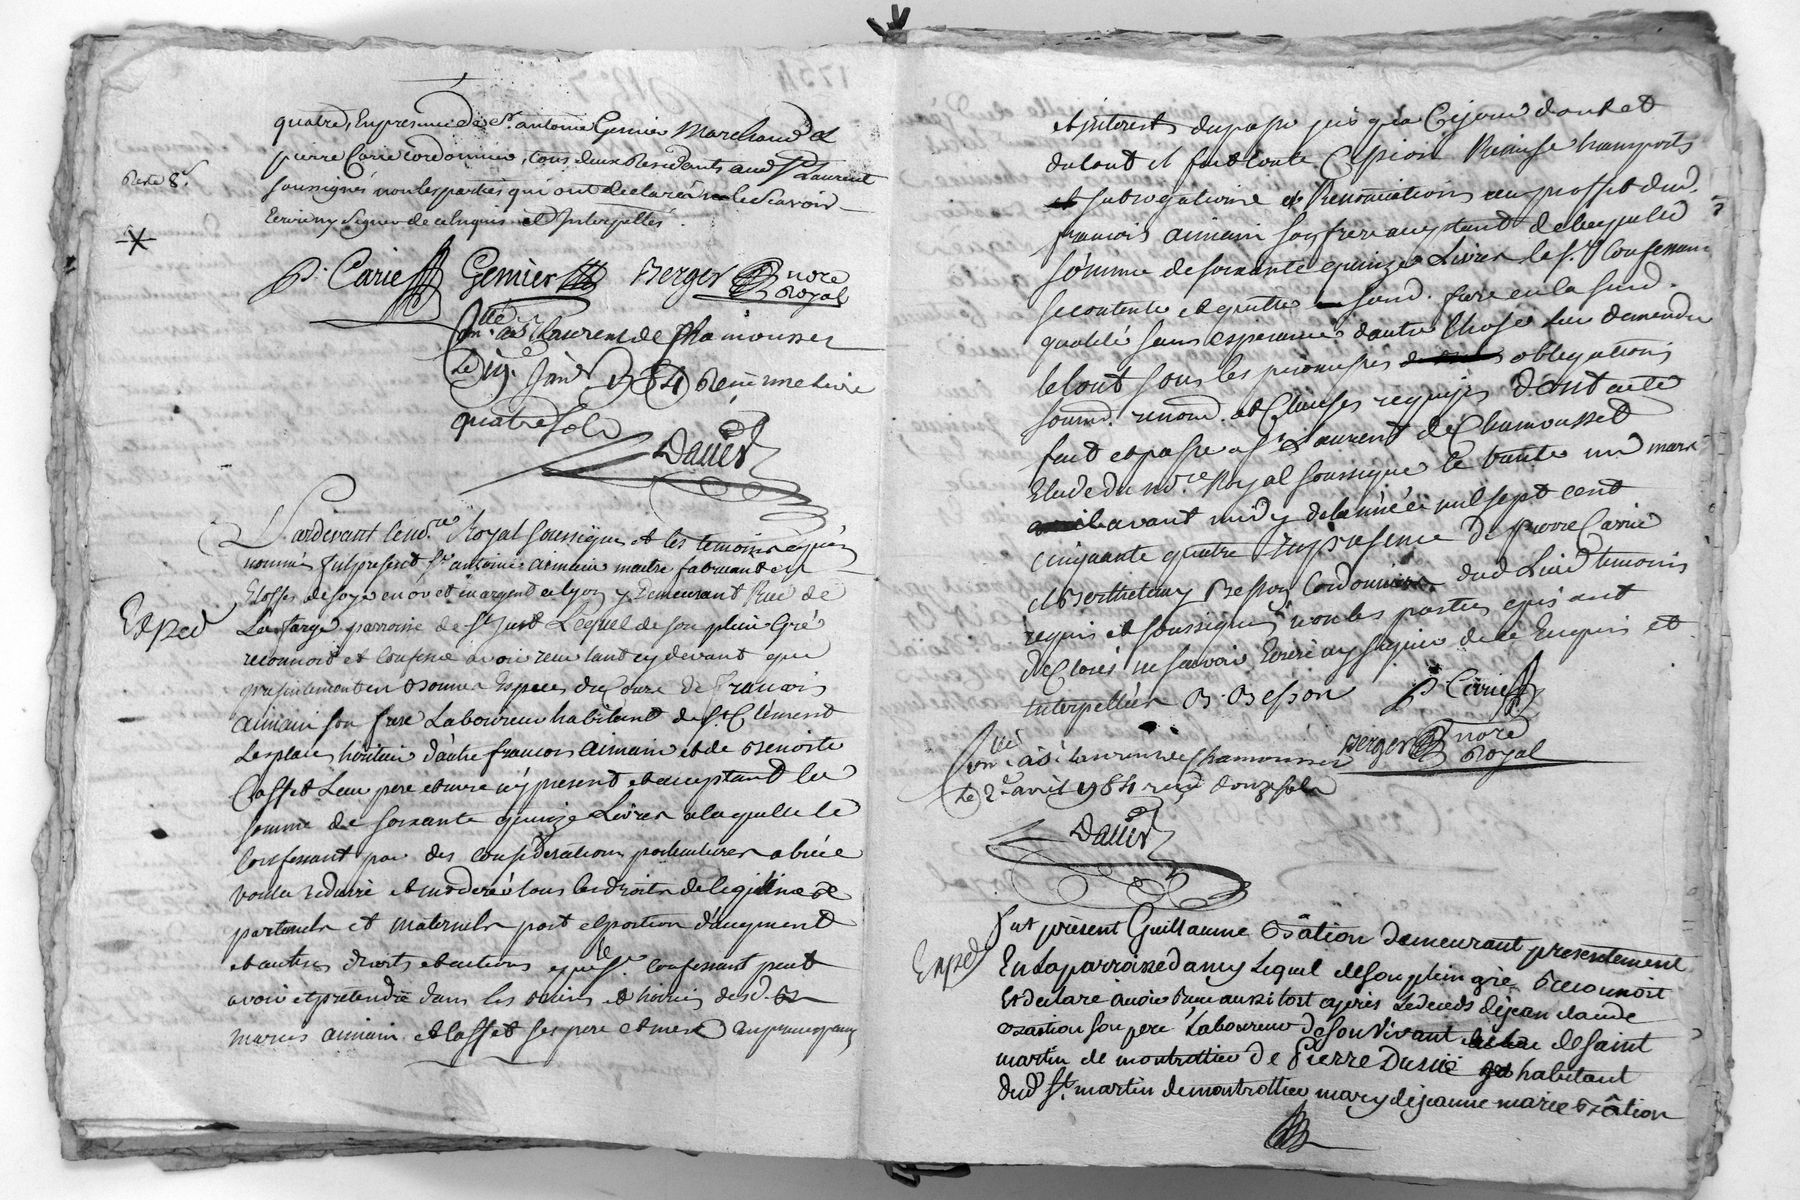 quatre, En presence de Sr. antoine Gernier Marchand et
pierre Carie Cordonnier, tous deux Residants aud. St Laurent
soussignés non les parties qui ont declaré ne le Scavoir
Ecrire ny Signer de ce Enquis et Interpellés.
P. Carie Gernier Berger nore
Royal
Conlle. a St Laurent de Chamousset
Le 19e Janr 1754 Reçu une livre
quatre sols
Dauer
Pardevant le nore. Royal soussigne et les temoins apres
nommés fut present Sr antoine aimain maitre fabricant en
Etoffes de soye en or et en argent a Lyon y Demeurant Rue de
La farge parroisse de St Just Lequel de son plein Gré
reconnoit et Confesse avoir reçu tant cy devant que
presentement en Bonnes Especes du Cours de francois
aimain son frere Laboureur habitant de St Clement
Les places heritier d'autre francois aimain et de Benoite
Casset Leur pere et mere cy present et acceptant la
somme de soixante quinze Livres a laquelle le
Confessant par des considerations particulieres a bien
voulu reduire et moderer tous les droits de legitime
paternels et maternels part et portion d'augment
et autres droits et actions que le Sr. Confessant peut
avoir et pretendre dans les biens et hoiries desd.
maries aimain et Casset ses pere et mere
Exped
et interets du passe jusqu'a Ce jour dont et
du tout il fait toute Cession Remise transports
subrogations et Renonciations au proffit dud.
francois aimain son frere acceptant de laquelle
somme de soixante quinze Livres le Sr. Confessant
se contente et quitte sond. frere en lad.
qualité sans esperance d'autre Chose lui demander
le tout sous les promesses obligations
soumd. renond. et Clauses requises Dont acte
fait et passe a St Laurent de Chamousset
Etude du nore. Royal soussigne le trente un mars
avant midy de l'année mil sept cent
cinquante quatre En presence de pierre Carrie
et Berthelemy Besson Cordonniers dud. Lieu temoins
requis et soussignés non les parties qui ont
declarés ne scavoir Ecrire ny signer de ce Enquis et
Interpellées B. Besson P. Carie
Berger nore
Royal
Conlle. a St Laurent de Chamousset
Le 2e. avril 1754 reçu douze sols
Dauer
Exped
fut present Guillaume Bration Demeurant presentement
En La parroisse d'ancy Lequel de son plein gré Reconnoit
Et declare avoir Reçu aussi tost apres Le deceds de jean claude
Bration son pere Laboureur de son Vivant de Saint
martin de montrottier de Pierre habitant
dud. St. martin de montrottier mary de jeanne marie Bration